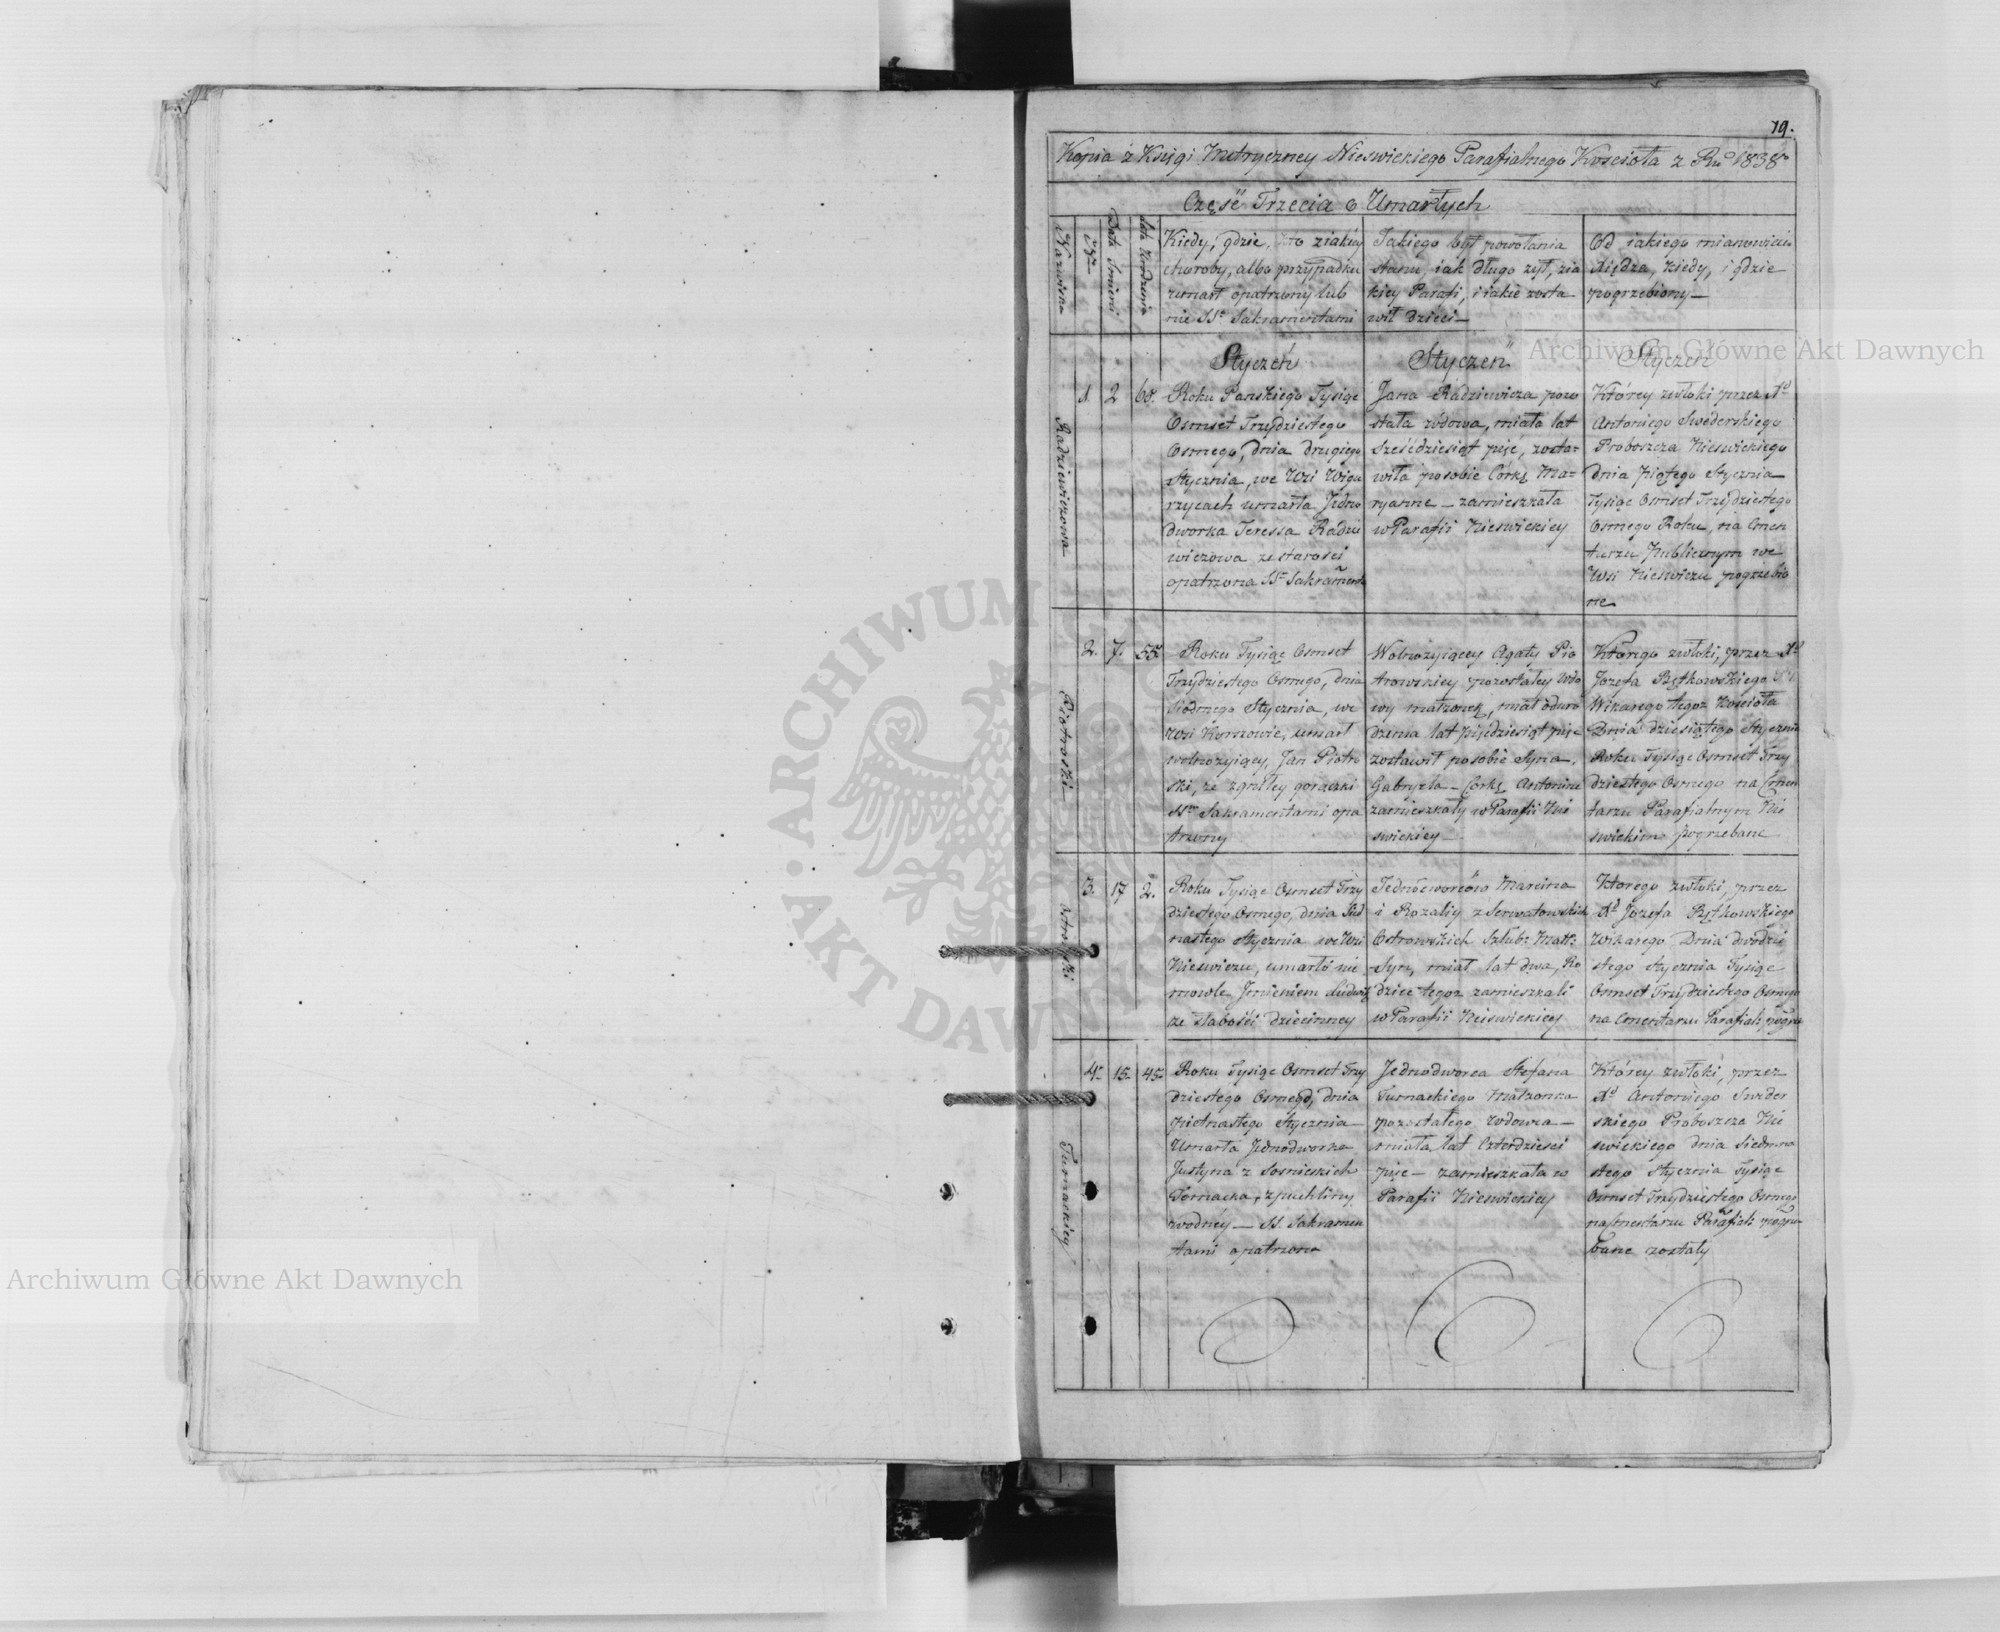 19.
Kopia z Księgi Metryczney Nieswickiego Parafialnego Kościoła z Ru 1838o
Część Trzecia o Umarłych
Nazwiska
Nr
Data Śmierci
lata Urodzenia
Kiedy, gdzie, kto z iakiey
choroby, albo przypadku
umarł opatrzony lub
nie SS. Sakramentami
Jakiego był powołania
stanu, iak długo żył, z ia
kiey Parafi, i iakie zosta
wił dzieci —
Od iakiego mianowicie
Xiędza, kiedy, i gdzie
pogrzebiony —
Styczeń
Styczeń
Styczeń
Radziewiczowa
1. 2 65.
Roku Pańskiego Tysiąc
Osmset Trzydziestego
Osmego, dnia drugiego
Stycznia, we Wsi Wigu
rzycach umarła Jedno
dworka Teressa Radzie
wiczowa ze starości
opatrzona SS. Sakrament
Jana Radziewicza pozo
stała wdowa, miała lat
sześćdziesiąt pięć, zosta-
wiła po sobie Córkę Ma-
ryanne — zamieszkała
w Parafii Nieswickiey
Którey zwłoki przez Xd
Antoniego Swederskiego
Proboszcza Nieswickiego
dnia Piątego Stycznia
Tysiąc Osmset Trzydziestego
Osmego Roku, na Cmen
tarzu Publicznym we
Wsi Nieswiczu pogrzebio
ne
Piotroski
2. 7. 55.
Roku Tysiąc Osmset
Trzydziestego Osmego, dnia
Siódmego Stycznia, we
Wsi Korszowie, umarł
wolnożyiący, Jan Piotro
ski, ze zgniłey gorączki
SS. Sakramentami opa
trzony
Wolnożyiącey Agaty Pio
trowskiey pozostałey Wdo
wy małżonek, miał od uro
dzenia lat pięćdziesiąt pięć
zostawił po sobie Syna
Gabryela — Corkę Antoninę
zamieszkały w Parafii Nie
swickiey —
Którego zwłoki, przez Xd
Jozefa Rętkowskiego
Wikarego tegoż Kościoła
Dnia dziesiątego Stycznia
Roku Tysiąc Osmset Trzy
dziestego Osmego na Cmen
tarzu Parafialnym Nie
swickim pogrzebane
Ostrowski
3. 17 2.
Roku Tysiąc Osmset Trzy
dziestego Osmego, dnia Sied
nastego Stycznia we Wsi
Nieswiczu, umarło nie
mowle Jmieniem Ludwik
ze słabości dziecinney
Jednodworców Marcina
i Rozalij z Serwatowskich
Ostrowskich Szlub: Małż:
Syn, miał lat dwa, Ro
dzice tegoż zamieszkali
w Parafii Nieswickiey
Ktorego zwłoki, przez
Xd Jozefa Rętkowskiego
Wikarego Dnia dwódzie
stego Stycznia Tysiąc
Osmset Trzydziestego Osmego
na Cmentarzu Parafial: pogrze
Turnackiey
4. 15. 45.
Roku Tysiąc Osmset Trzy
dziestego Osmego, dnia
piętnastego Stycznia —
Umarła Jednodworka
Justyna z Sosnickich
Tornacka, z puchliny
wodney — SS. Sakramen
tami opatrzona
Jednodworca Stefana
Turnackiego Małżonka
pozostałego Wdowca —
miała lat Czterdzieści
pięć — zamieszkała w
Parafii Nieswickiey
Którey zwłoki, przez
Xd Antoniego Swider
skiego Proboszcza Nie
swickiego dnia Siedmna
stego Stycznia Tysiąc
Osmset Trzydziestego Osmego
na Cmentarzu Parafial: pogrze
bane zostały
Archiwum Główne Akt Dawnych
Archiwum Główne Akt Dawnych
ARCHIWUM GŁÓWNE AKT DAWNYCH